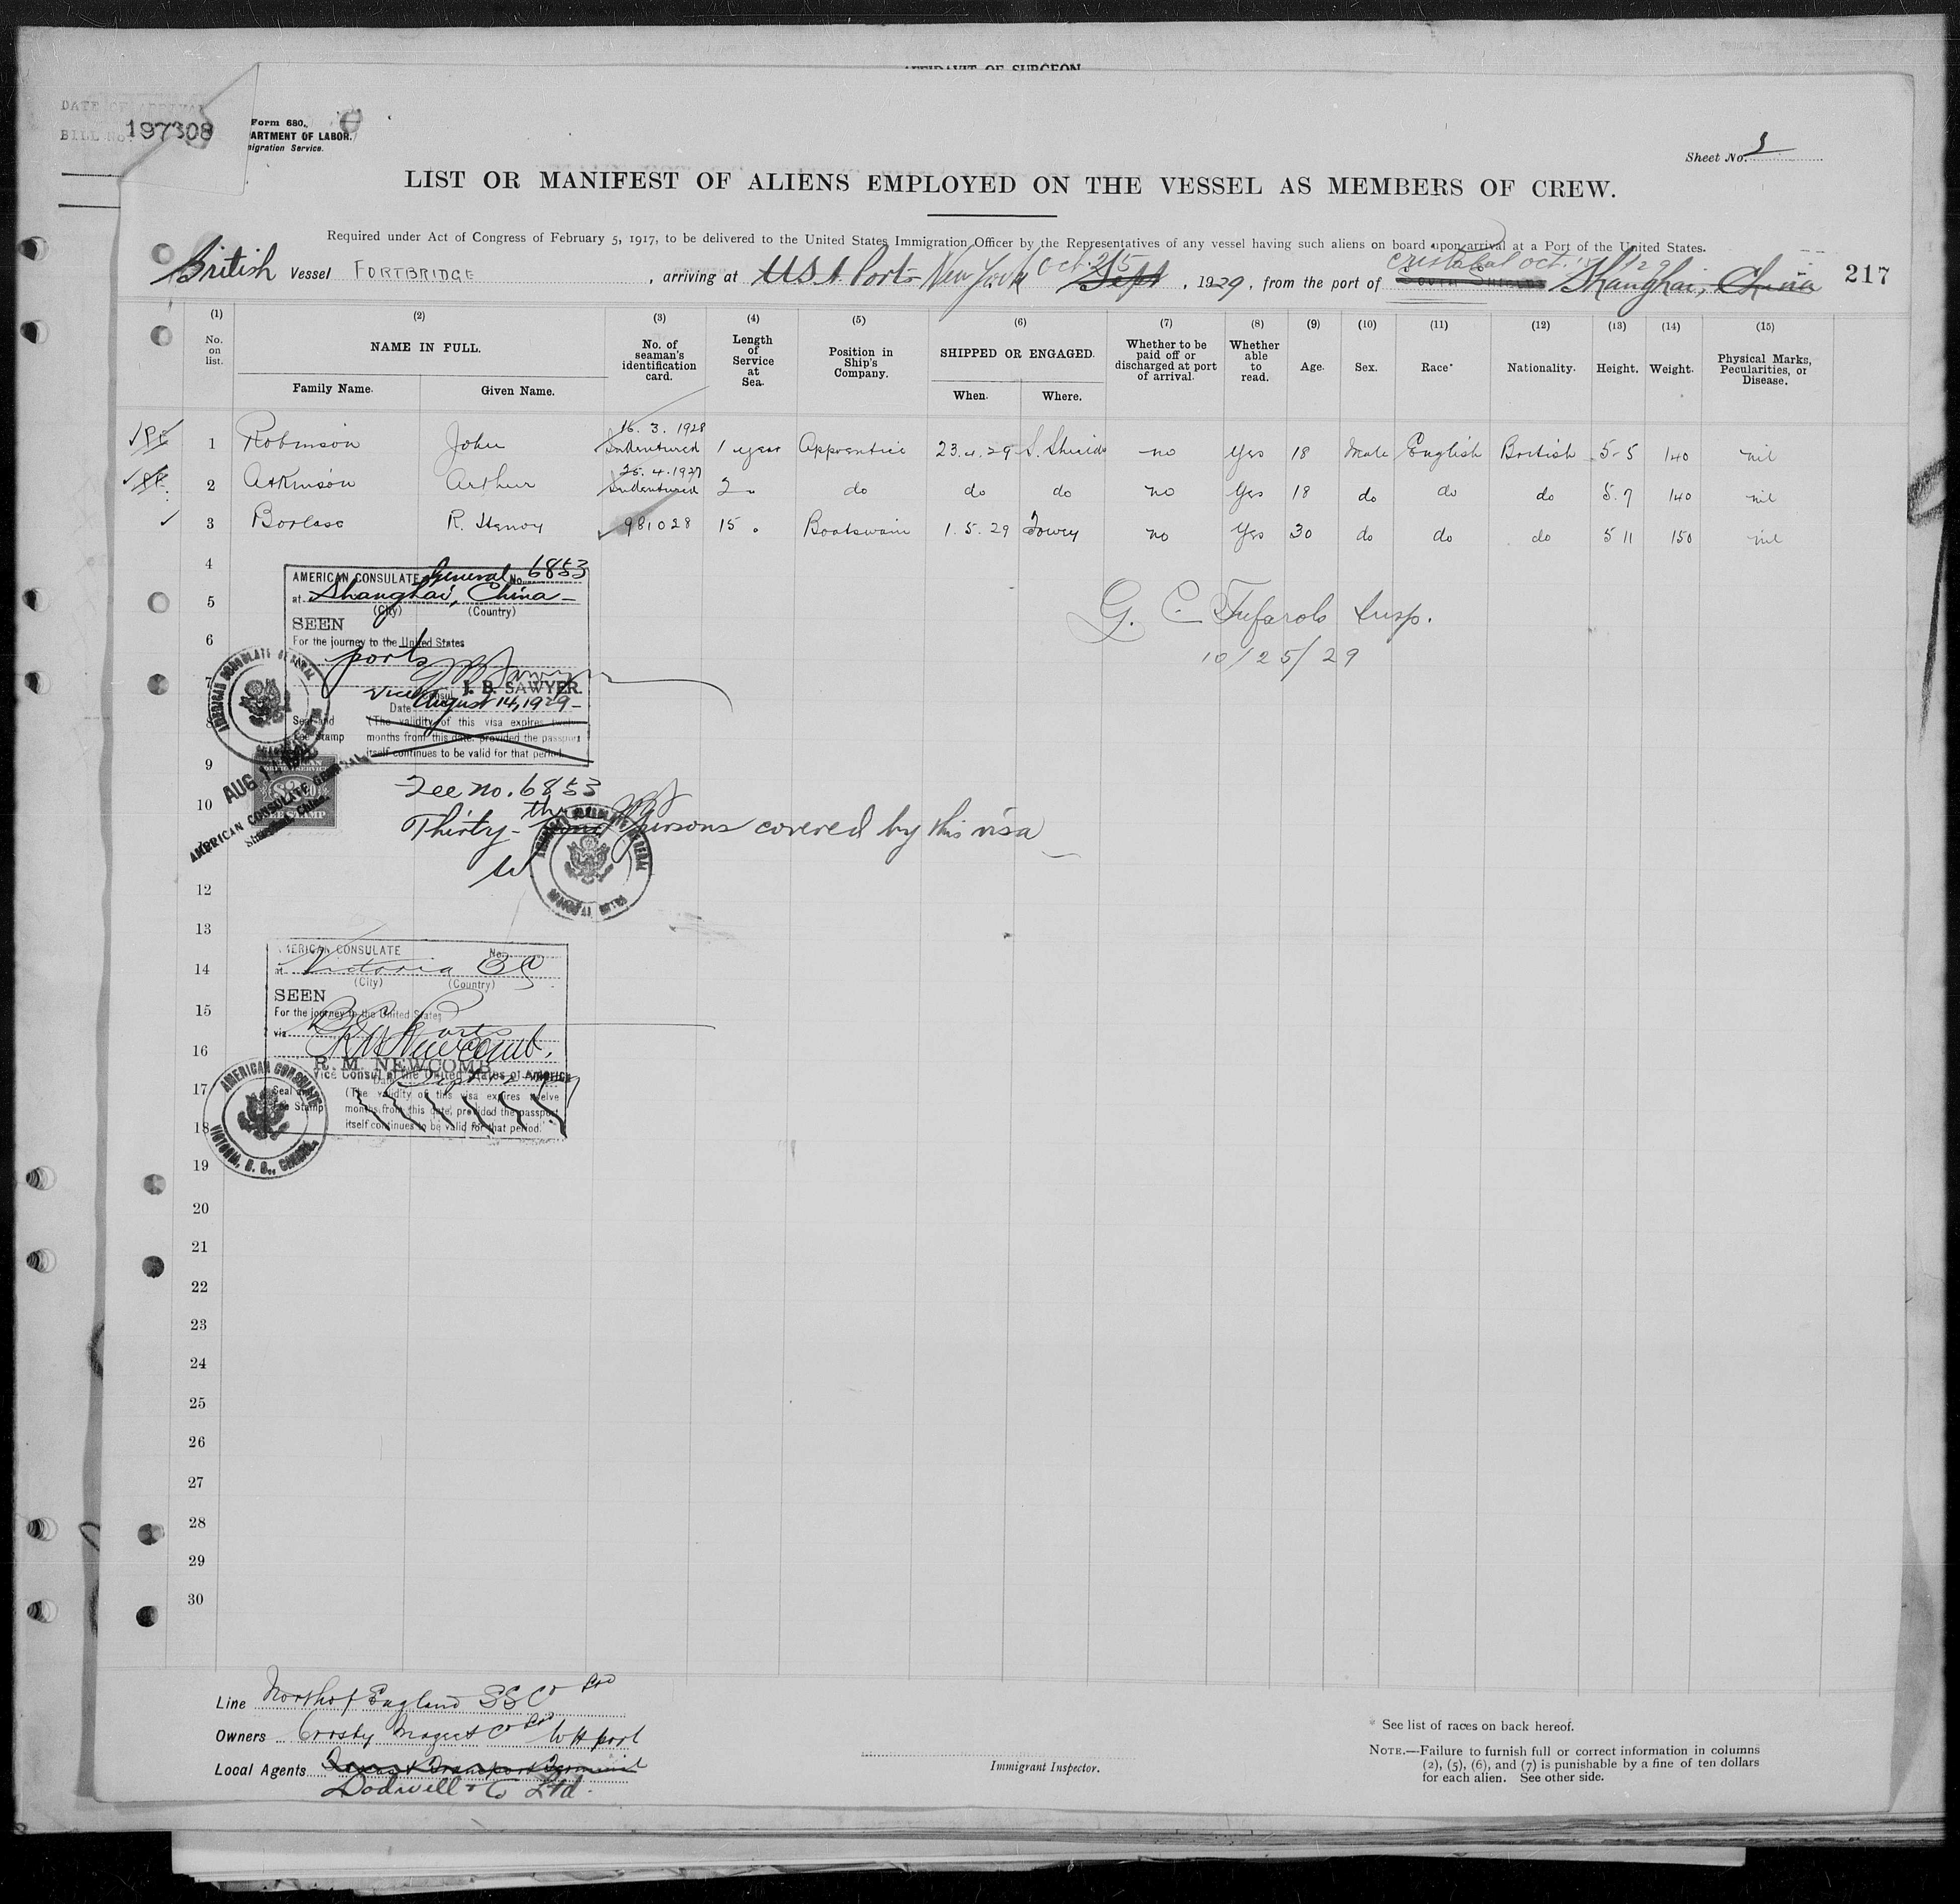 AFFIDAVIT OF SURGEON
DATE OF ARRIVAL
BILL No. 197308
Form 680.
ARTMENT OF LABOR.
igration Service.
Sheet No.
LIST OR MANIFEST OF ALIENS EMPLOYED ON THE VESSEL AS MEMBERS OF CREW.
Required under Act of Congress of February 5, 1917, to be delivered to the United States Immigration Officer by the Representatives of any vessel having such aliens on board upon arrival at a Port of the United States.
Cristobal Oct.
British Vessel FORTBRIDGE, arriving at USA Ports New York Oct. 25 Sept, 1929, from the port of South Shields Shanghai, China 217
(1) (2) (3) (4) (5) (6) (7) (8) (9) (10) (11) (12) (13) (14) (15)
No. on list. NAME IN FULL. No. of seaman's identification card. Length of Service at Sea. Position in Ship's Company. SHIPPED OR ENGAGED. Whether to be paid off or discharged at port of arrival. Whether able to read. Age. Sex. Race* Nationality. Height. Weight. Physical Marks, Pecularities, or Disease.
Family Name. Given Name. When. Where.
16.3.1928
1 Robinson John Indentured 1 year Apprentice 23.4.29 S. Shields no Yes 18 Male English British 5-5 140 nil
25.4.1927
2 Atkinson Arthur Indentured 2 " do do do no Yes 18 do do do 5.7 140 nil
3 Borlase R. Henry 981028 15 " Boatswain 1.5.29 Fowey no Yes 30 do do do 5 11 150 nil
4
5
6
7
8
9
10
12
13
14
15
16
17
18
19
20
21
22
23
24
25
26
27
28
29
30
AMERICAN CONSULATE General No. 6853
at Shanghai, China
(City) (Country)
SEEN
For the journey to the United States
ports
J. B. SAWYER.
Vice Consul
Date August 14, 1929
Seal and Fee Stamp
(The validity of this visa expires twelve
months from this date, provided the passport
itself continues to be valid for that period.
AMERICAN CONSULATE GENERAL
AUG 14
AMERICAN CONSULATE GENERAL
Shanghai, China.
Fee no. 6853
Thirty-three persons covered by this visa
AMERICAN CONSULATE GENERAL
SHANGHAI CHINA
G. C. Tufarolo Insp.
10/25/29
AMERICAN CONSULATE No.
at Victoria BC
(City) (Country)
SEEN
For the journey to the United States
via Ports
R. M. Newcomb.
R. M. NEWCOMB
Vice Consul of the United States of America
Date
Seal and Fee Stamp
(The validity of this visa expires twelve
months from this date, provided the passport
itself continues to be valid for that period.
AMERICAN CONSULATE
VICTORIA, B. C., CANADA.
Line North of England SS Co Ltd
Owners Crosby Magee & Co Ltd W H pool
Local Agents Texas Transport Terminal
Dodwell & Co Ltd.
Immigrant Inspector.
* See list of races on back hereof.
NOTE.—Failure to furnish full or correct information in columns
(2), (5), (6), and (7) is punishable by a fine of ten dollars
for each alien. See other side.